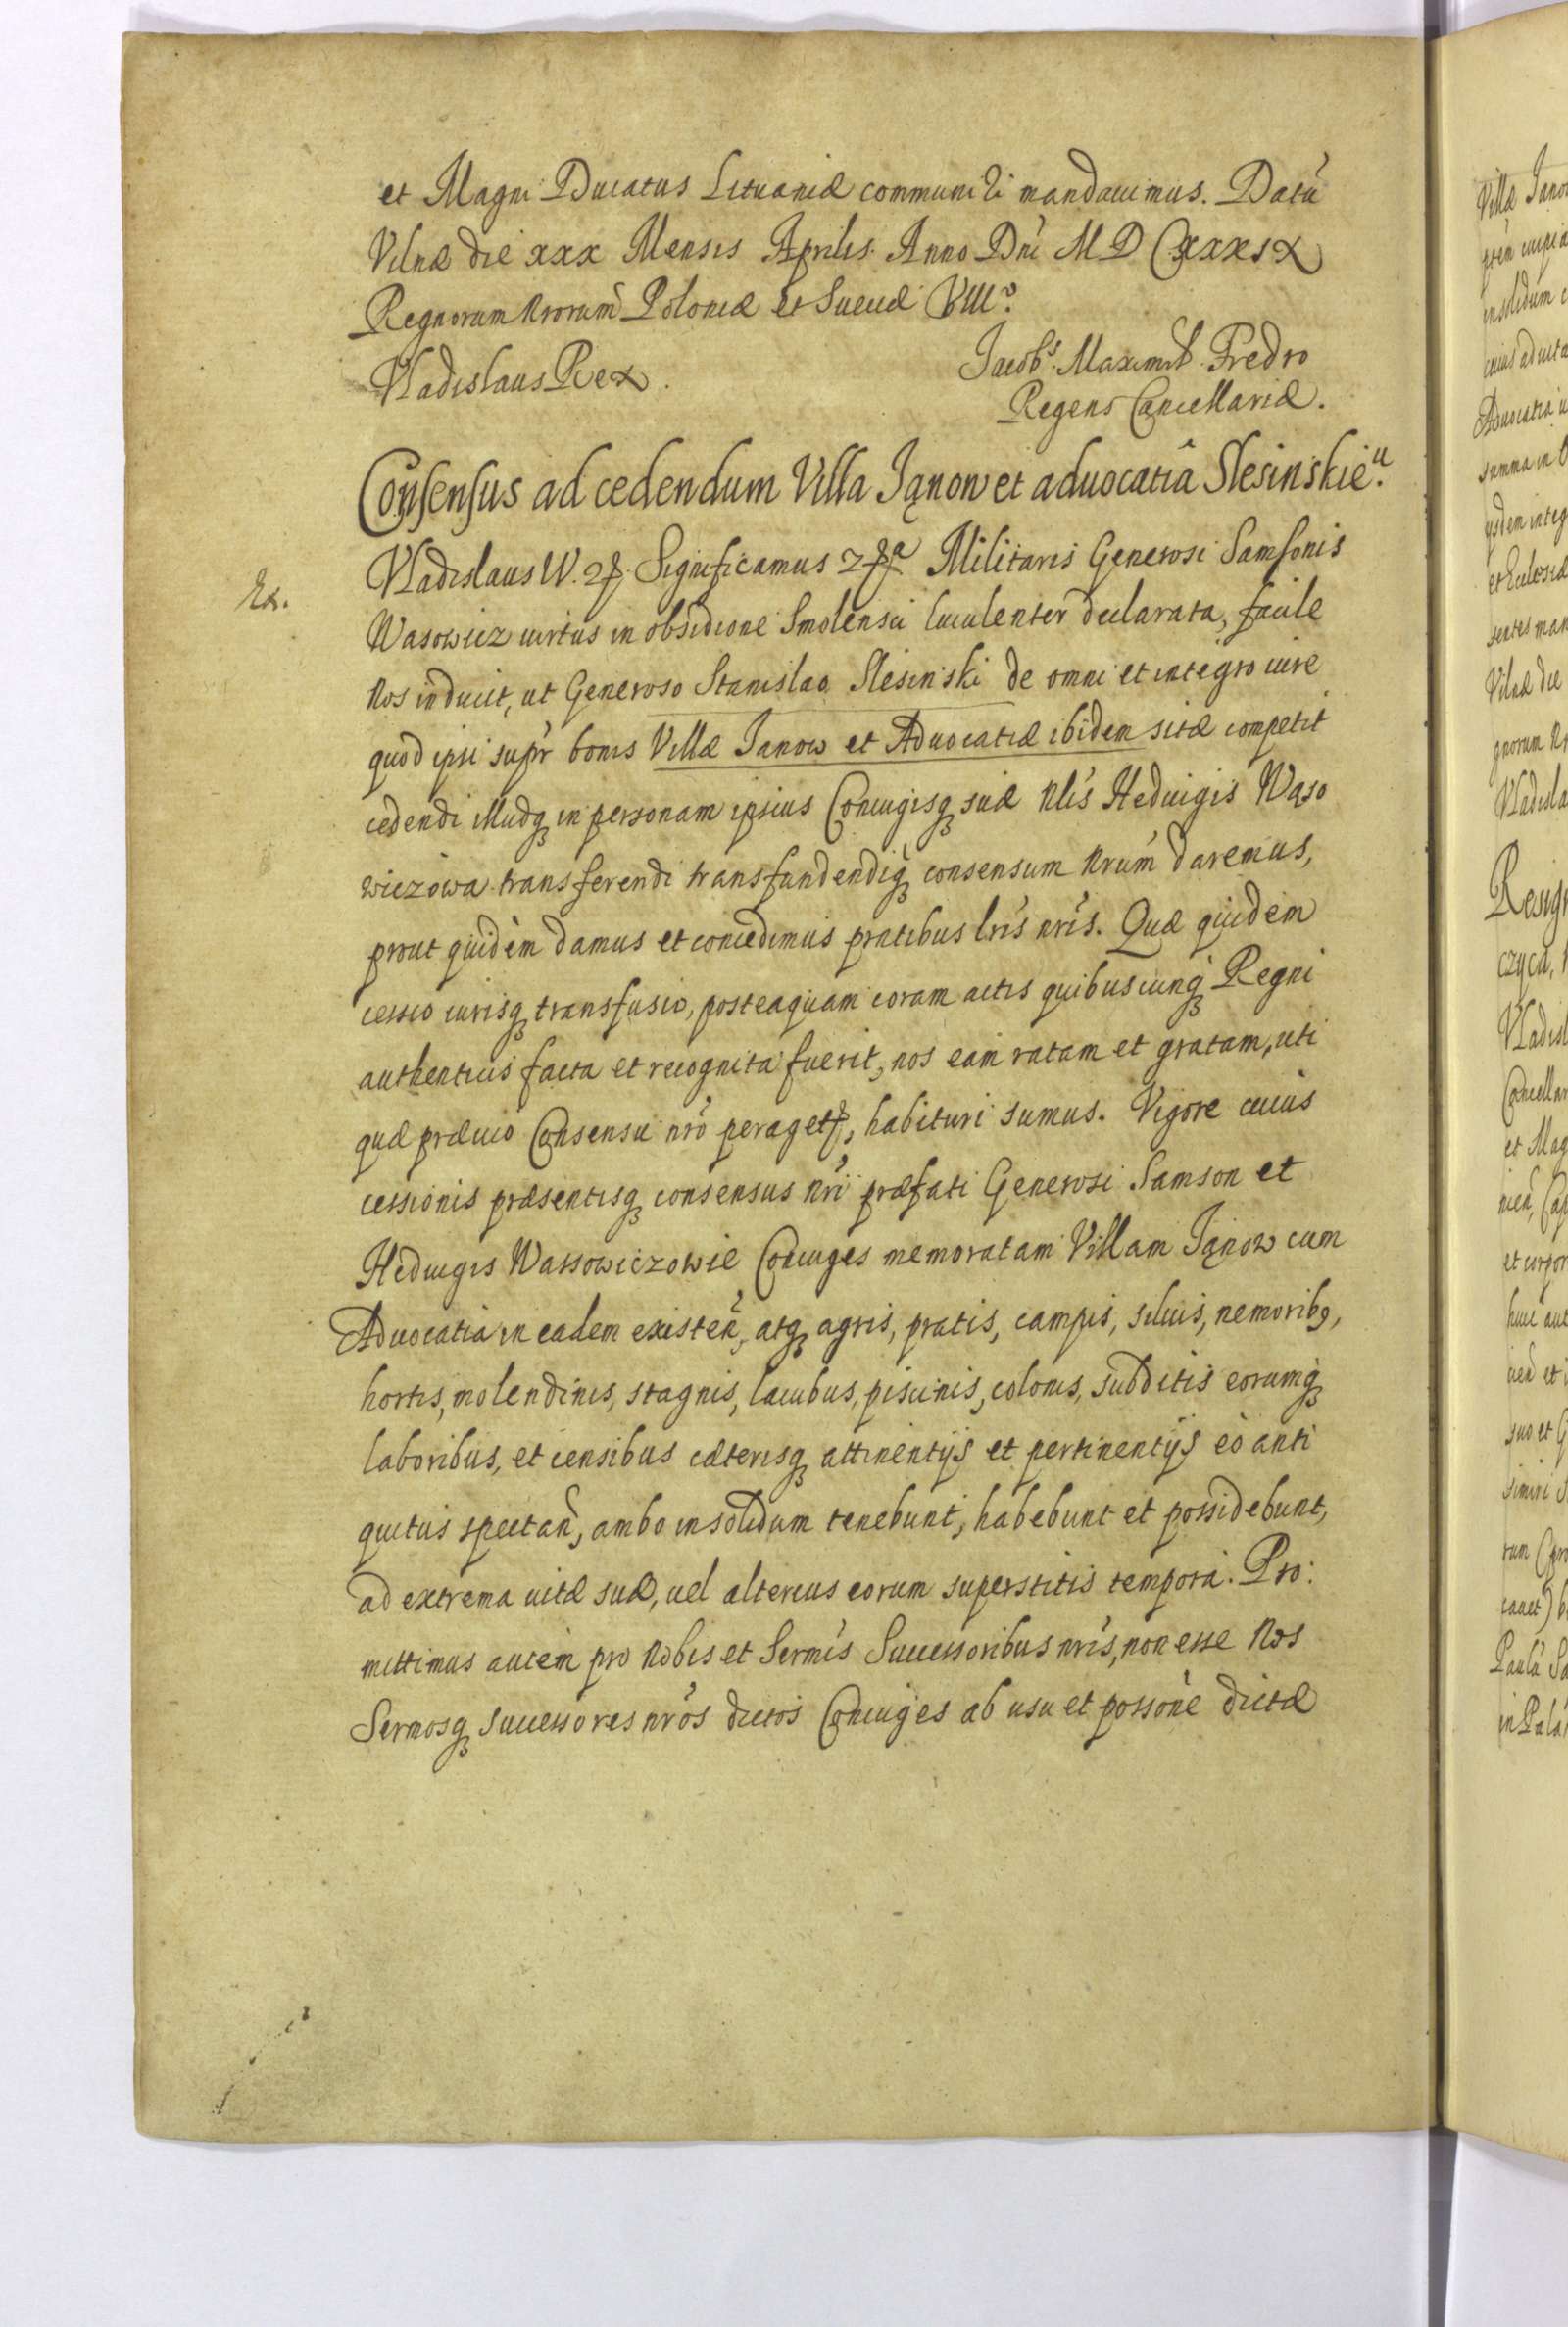 et Magni Ducatus Lituaniæ communiri mandauimus. Datū
Vilnæ die xxx Mensis Aprilis. Anno Dni M D CXXXIX
Regnorum Nrorum Poloniæ et Sueciæ VIIIº.
Vladislaus Rex.
Jacobs. Maximil. Fredro
Regens Cancellariæ.
Consensus ad cedendum Villa Janow et aduocatiâ Slesinskieu.
Ex.
Vladislaus IV. Significamus Militaris Generosi Samsonis
Wasowicz uirtus in obsidione Smolensci luculenter declarata, facile
Nos inducit, ut Generoso Stanislao Slesinski de omni et integro iure
quod ipsi supr bonis Villæ Janow et Aduocatiæ ibidem sitæ competit
cedendi illudq in personam ipsius Coniugisq suæ Nlis Heduigis Wąso
wiczowa transferendi transfundendiq consensum Nrum daremus,
prout quidem damus et concedimus pntibus lris nris. Quæ quidem
cessio iurisq transfusio, posteaquam coram actis quibuscunq Regni
authenticis facta et recognita fuerit, nos eam ratam et gratam, uti
quæ præuio Consensu nro peraget, habituri sumus. Vigore cuius
cessionis præsentisq consensus nri præfati Generosi Samson et
Heduigis Wassowiczowie Coniuges memoratam Villam Janow cum
Aduocatia in eadem existen, atq agris, pratis, campis, siluis, nemorib9,
hortis, molendinis, stagnis, lacubus, piscinis, colonis, subditis eorumq
laboribus, et censibus cæterisq attinentijs et pertinentijs eò anti
quitus spectan, ambo insolidum tenebunt, habebunt et possidebunt,
ad extrema uitæ suæ, uel alterius eorum superstitis tempora. Pro:
mittimus autem pro Nobis et Sermis Successoribus nris, non esse Nos
Sermosq successores nros dictos Coniuges ab usu et possone dictæ